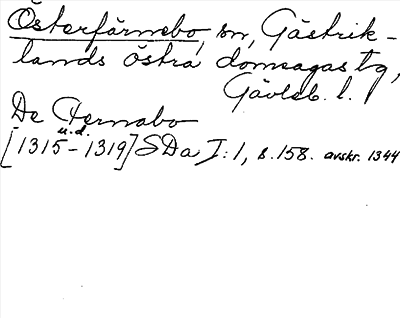 Österfärnebo, sn, Gästrik-
lands östra domsagas tg,
Gävleb. l.
De Fernabo
u.d.
[1315-1319] SDa I:1, s.158. avskr. 1344